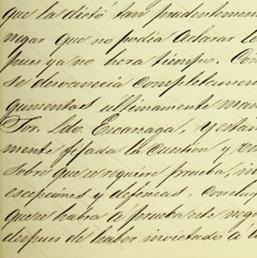 que la dictó tan prudentemen
negar que no podia aclarar lo
pues ya no hera tiempo. Con
se desvanecia completamen
gumentos ultimamente man
Sor. Ldo. Escanaga, y estan
mente fijada la cuestion y
sobre que se requiere prueba, in
escepciones y defensas. Concluy
que se habra á prueba este nego
despues de haber invietado á l